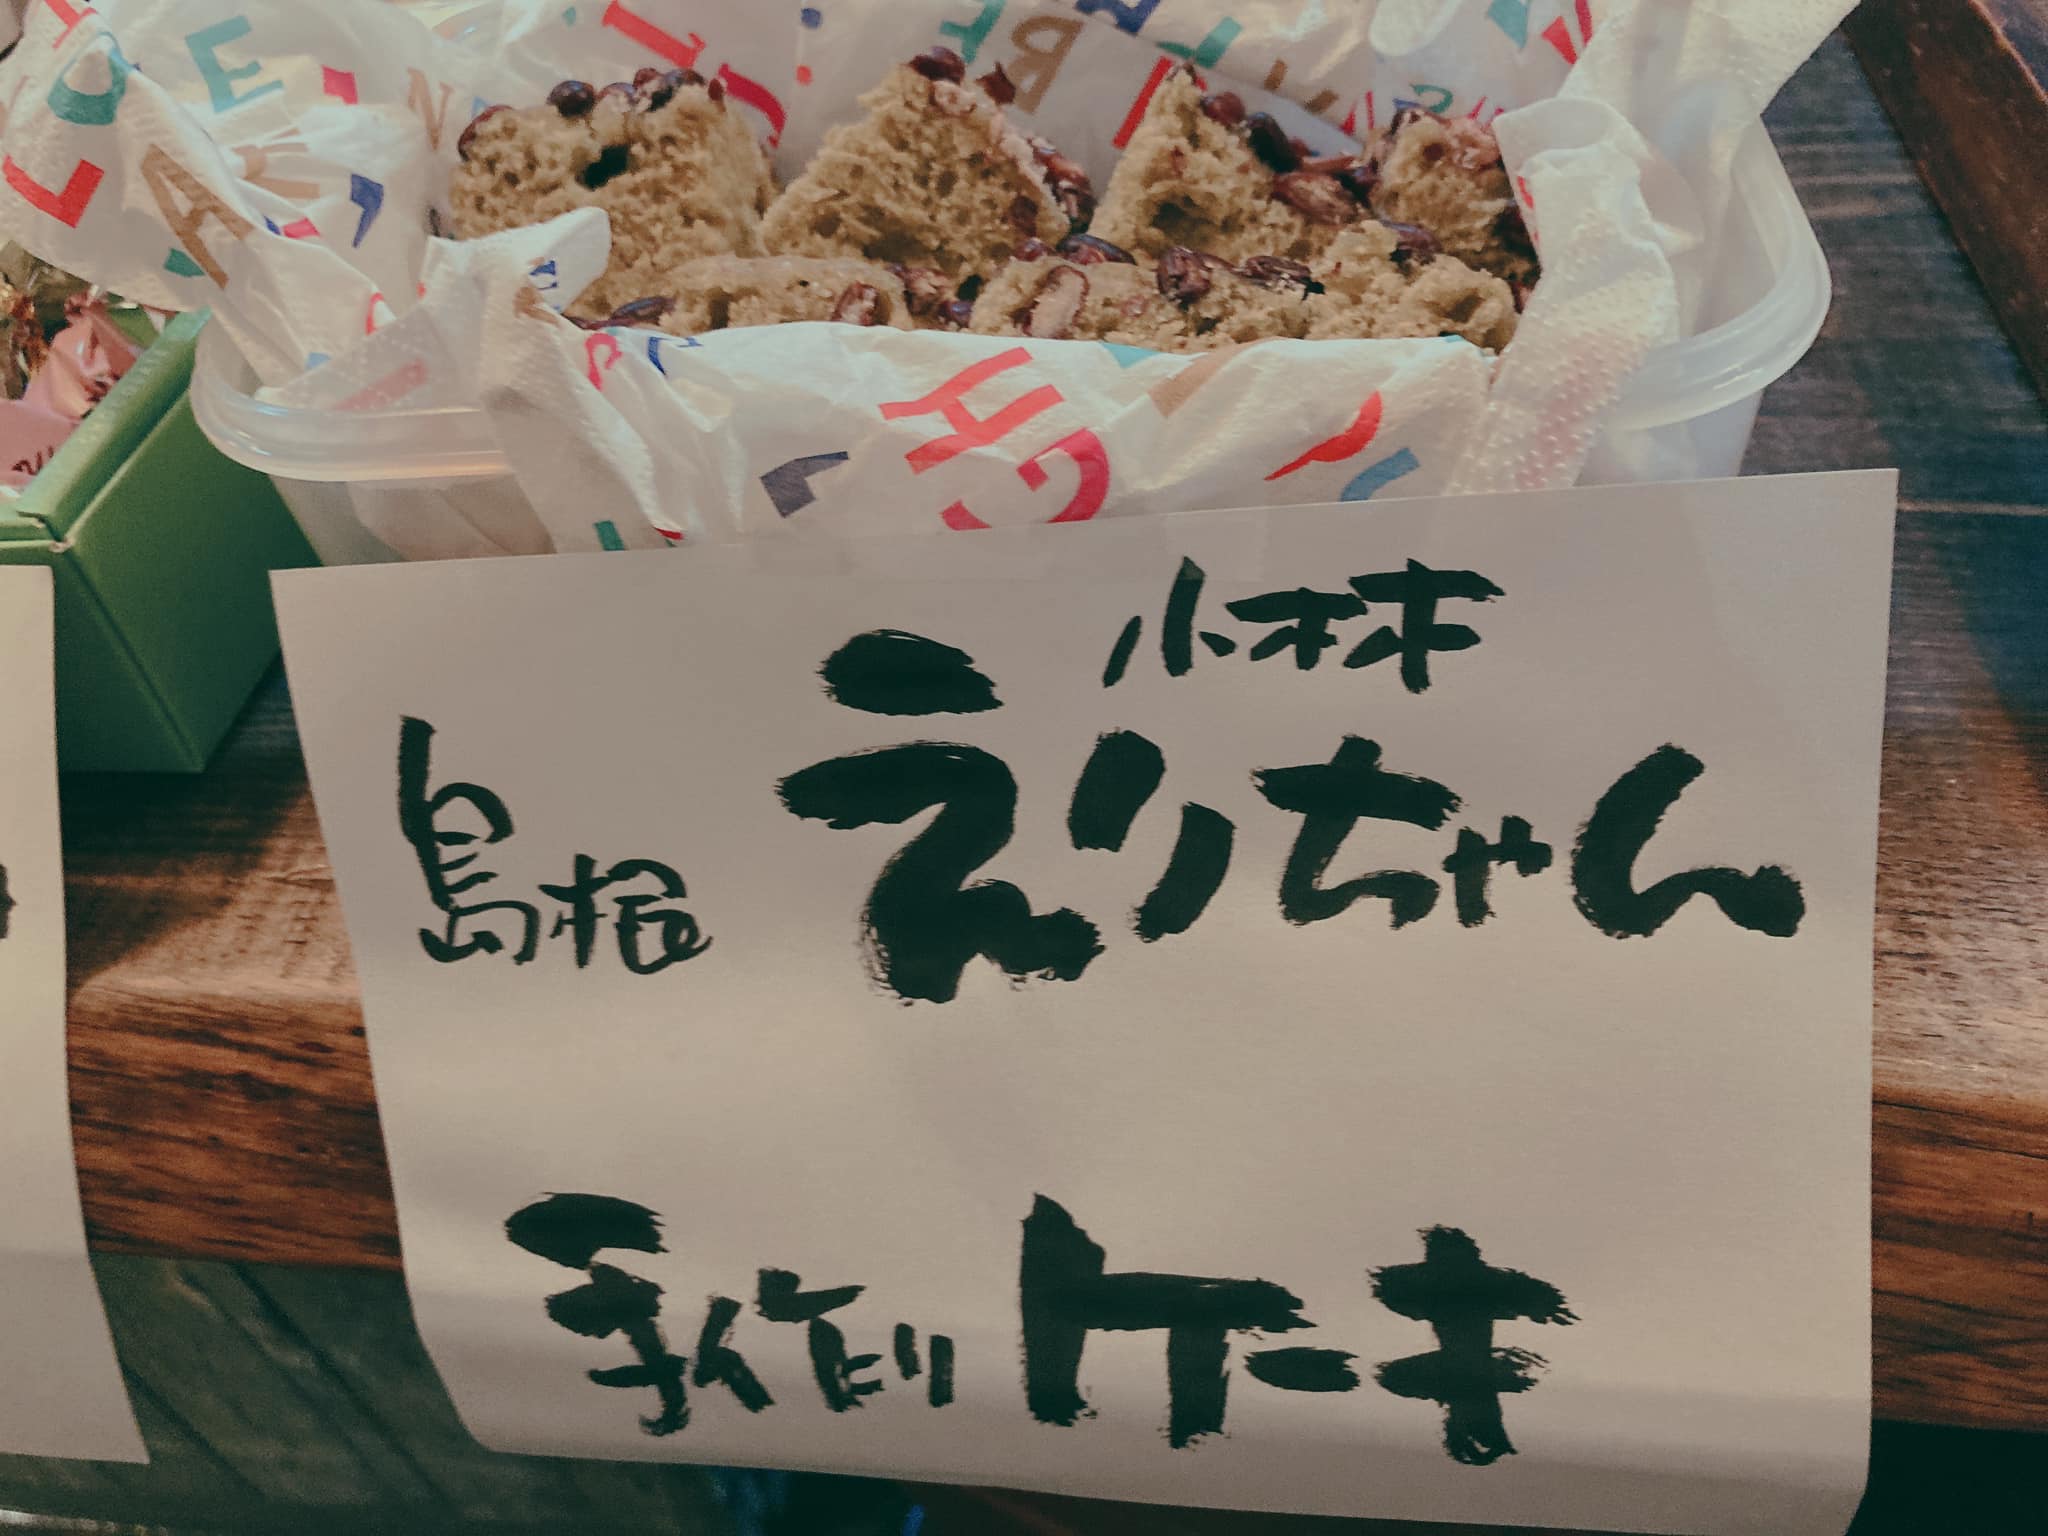 小林
島根 えりちゃん
手作りケーキ